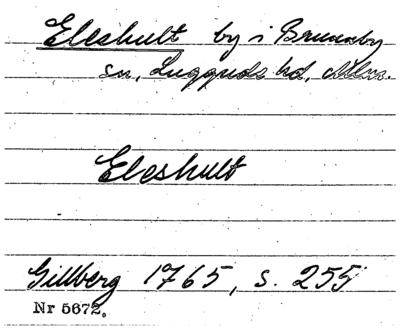 Eleshult by i Brunnby
sn, Luggude hd, Mlm.
Eleshult
Gillberg 1765, s. 255
Nr 5672.